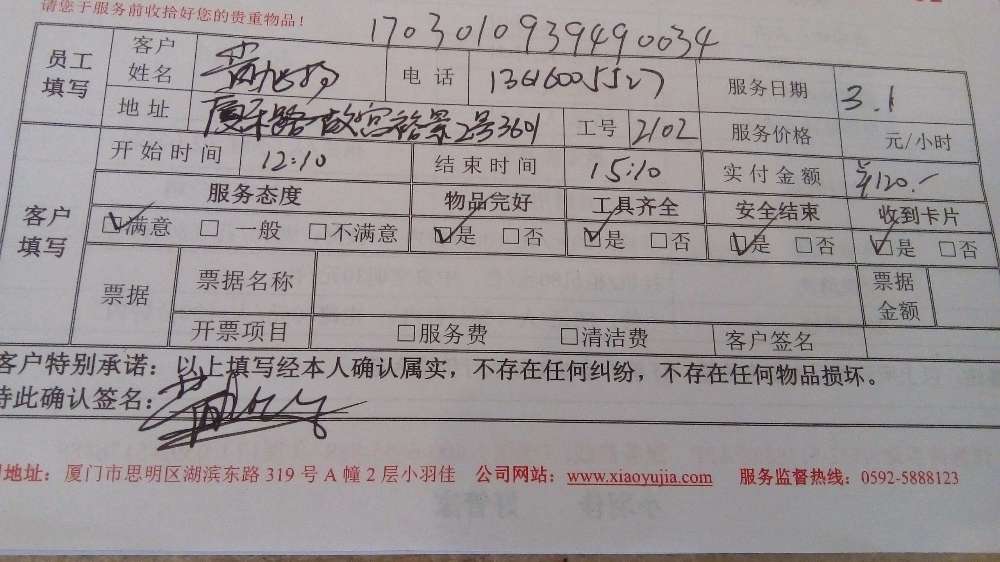 请您于服务前收拾好您的贵重物品！
1703010939490034
员工填写 客户姓名 电话 13616005527 服务日期 3.1
地址 2号3601 工号 2102 服务价格 元/小时
开始时间 12:10 结束时间 15:10 实付金额 ¥120.-
客户填写 服务态度 物品完好 工具齐全 安全结束 收到卡片
☑满意 □一般 □不满意 ☑是 □否 ☑是 □否 ☑是 □否 ☑是 □否
票据 票据名称 票据金额
开票项目 □服务费 □清洁费 客户签名
客户特别承诺：以上填写经本人确认属实，不存在任何纠纷，不存在任何物品损坏。
特此确认签名：
地址：厦门市思明区湖滨东路 319 号 A 幢 2 层小羽佳 公司网站：www.xiaoyujia.com 服务监督热线：0592-5888123